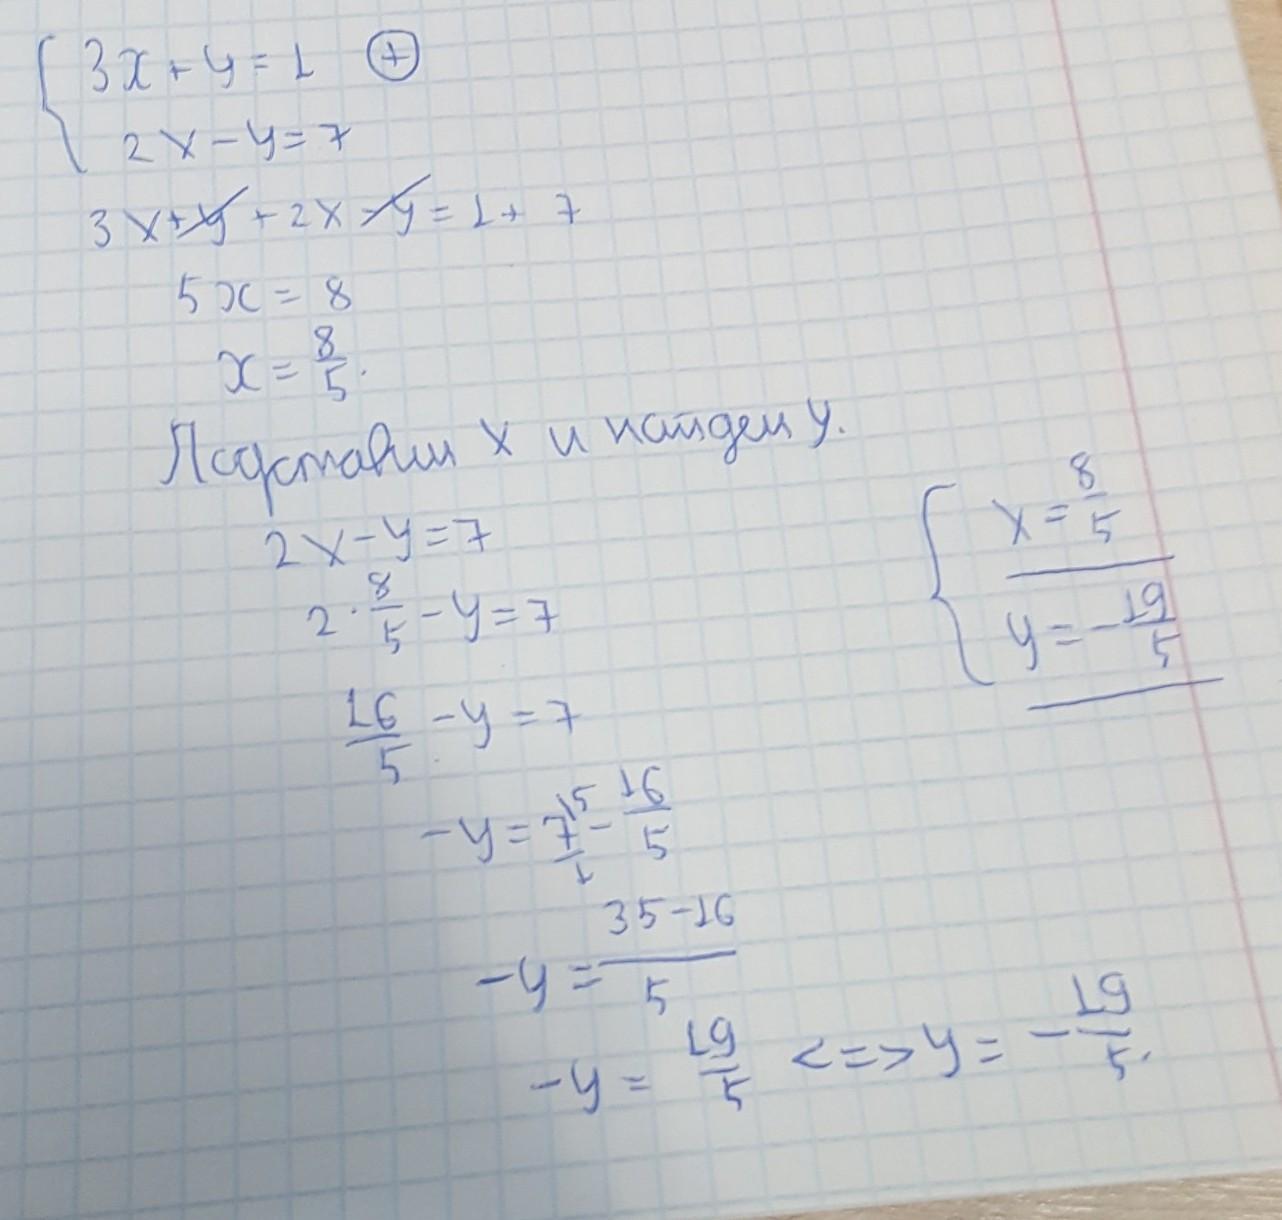 3x + y = 1 (+)
2x - y = 7
3x + y + 2x - y = 1 + 7
5x = 8
x = 8/5.
Подставим x и найдем y.
2x - y = 7
2 · 8/5 - y = 7
16/5 - y = 7
-y = 7/1 \5 - 16/5
-y = (35-16)/5
-y = 19/5 <=> y = -19/5.
x = 8/5
y = -19/5